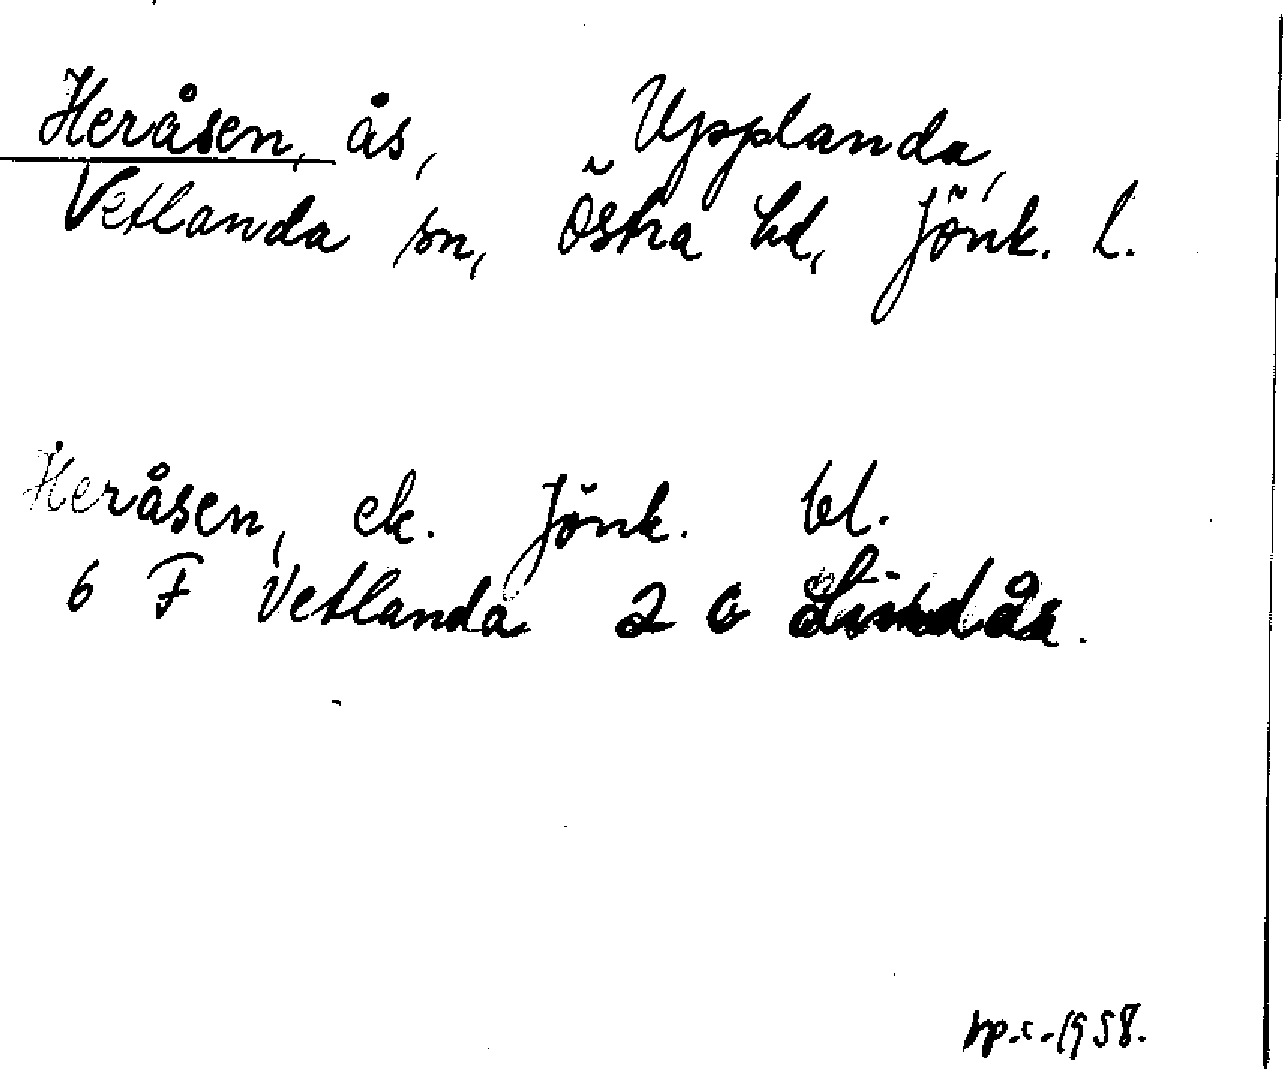 Heråsen, ås, Upplanda,
Vetlanda sn, Östra hd, Jönk. l.
Heråsen, ek. Jönk. bl.
6 F Vetlanda 2 c Lindås.
1958.